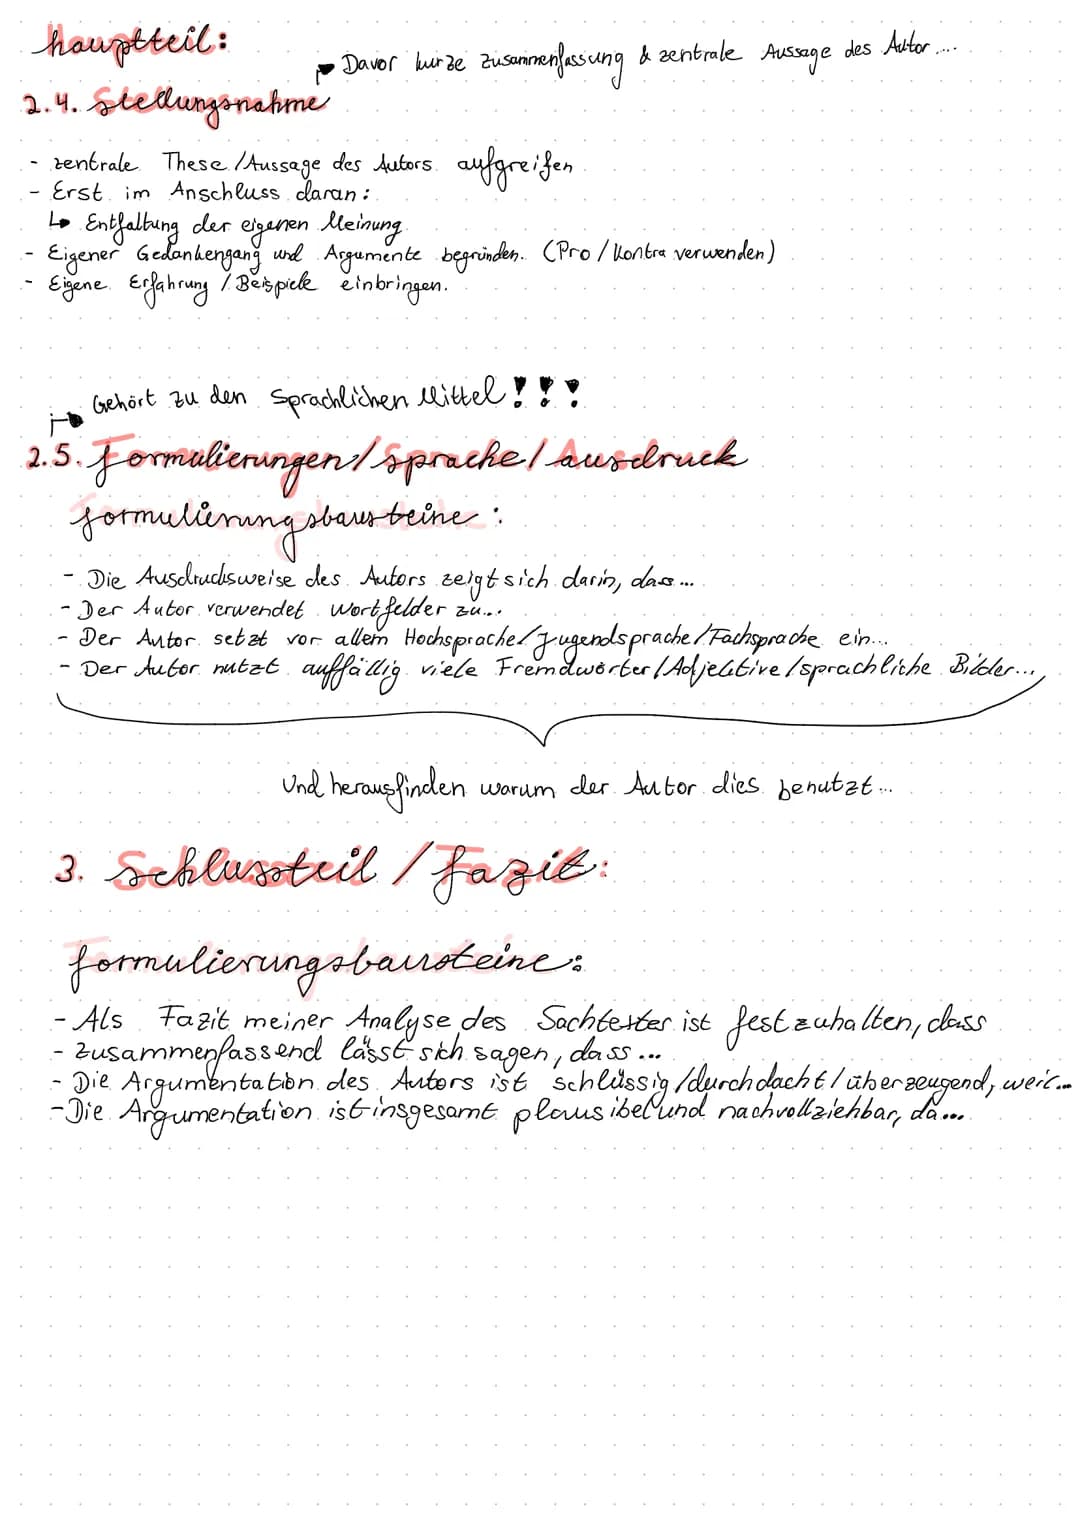 Hauptteil:
Davor kurze Zusammenfassung & zentrale Aussage des Autor....
2.4. Stellungsnahme
- zentrale These/Aussage des Autors aufgreifen
- Erst im Anschluss daran:
↳ Entfaltung der eigenen Meinung
- Eigener Gedankengang und Argumente begründen. (Pro/Kontra verwenden)
- Eigene Erfahrung / Beispiele einbringen.
Gehört zu den Sprachlichen Mittel!!!
2.5. Formulierungen/Sprache/Ausdruck
Formulierungsbausteine:
- Die Ausdrucksweise des Autors zeigt sich darin, dass...
- Der Autor verwendet Wortfelder zu...
- Der Autor setzt vor allem Hochsprache/Jugendsprache/Fachsprache ein...
- Der Autor nutzt auffällig viele Fremdwörter/Adjektive/sprachliche Bilder...,
Und herausfinden warum der Autor dies benutzt...
3. Schlussteil / Fazit:
Formulierungsbausteine:
- Als Fazit meiner Analyse des Sachtextes ist festzuhalten, dass
- Zusammenfassend lässt sich sagen, dass...
- Die Argumentation des Autors ist schlüssig/durchdacht/überzeugend, weil...
- Die Argumentation ist insgesamt plausibel und nachvollziehbar, da...